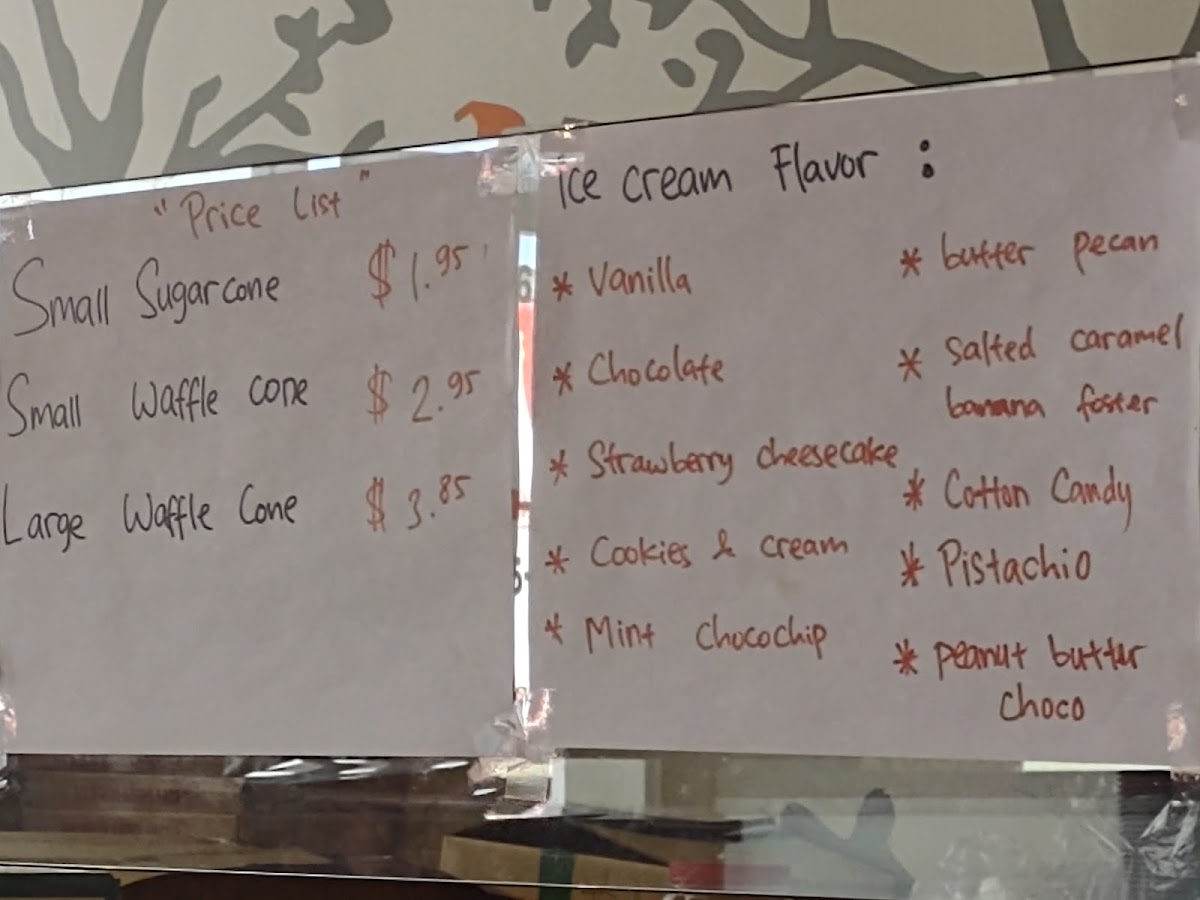 "Price List"
Small Sugarcone $1.95
Small Waffle cone $2.95
Large Waffle Cone $3.85
ice cream Flavor :
* Vanilla
* Chocolate
* Strawberry cheesecake
* Cookies & cream
* Mint chocochip
* butter pecan
* salted caramel
banana foster
* Cotton Candy
* Pistachio
* peanut butter
choco